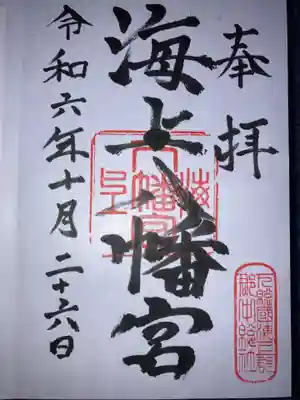 奉拝
海上八幡宮
令和六年十月二十六日